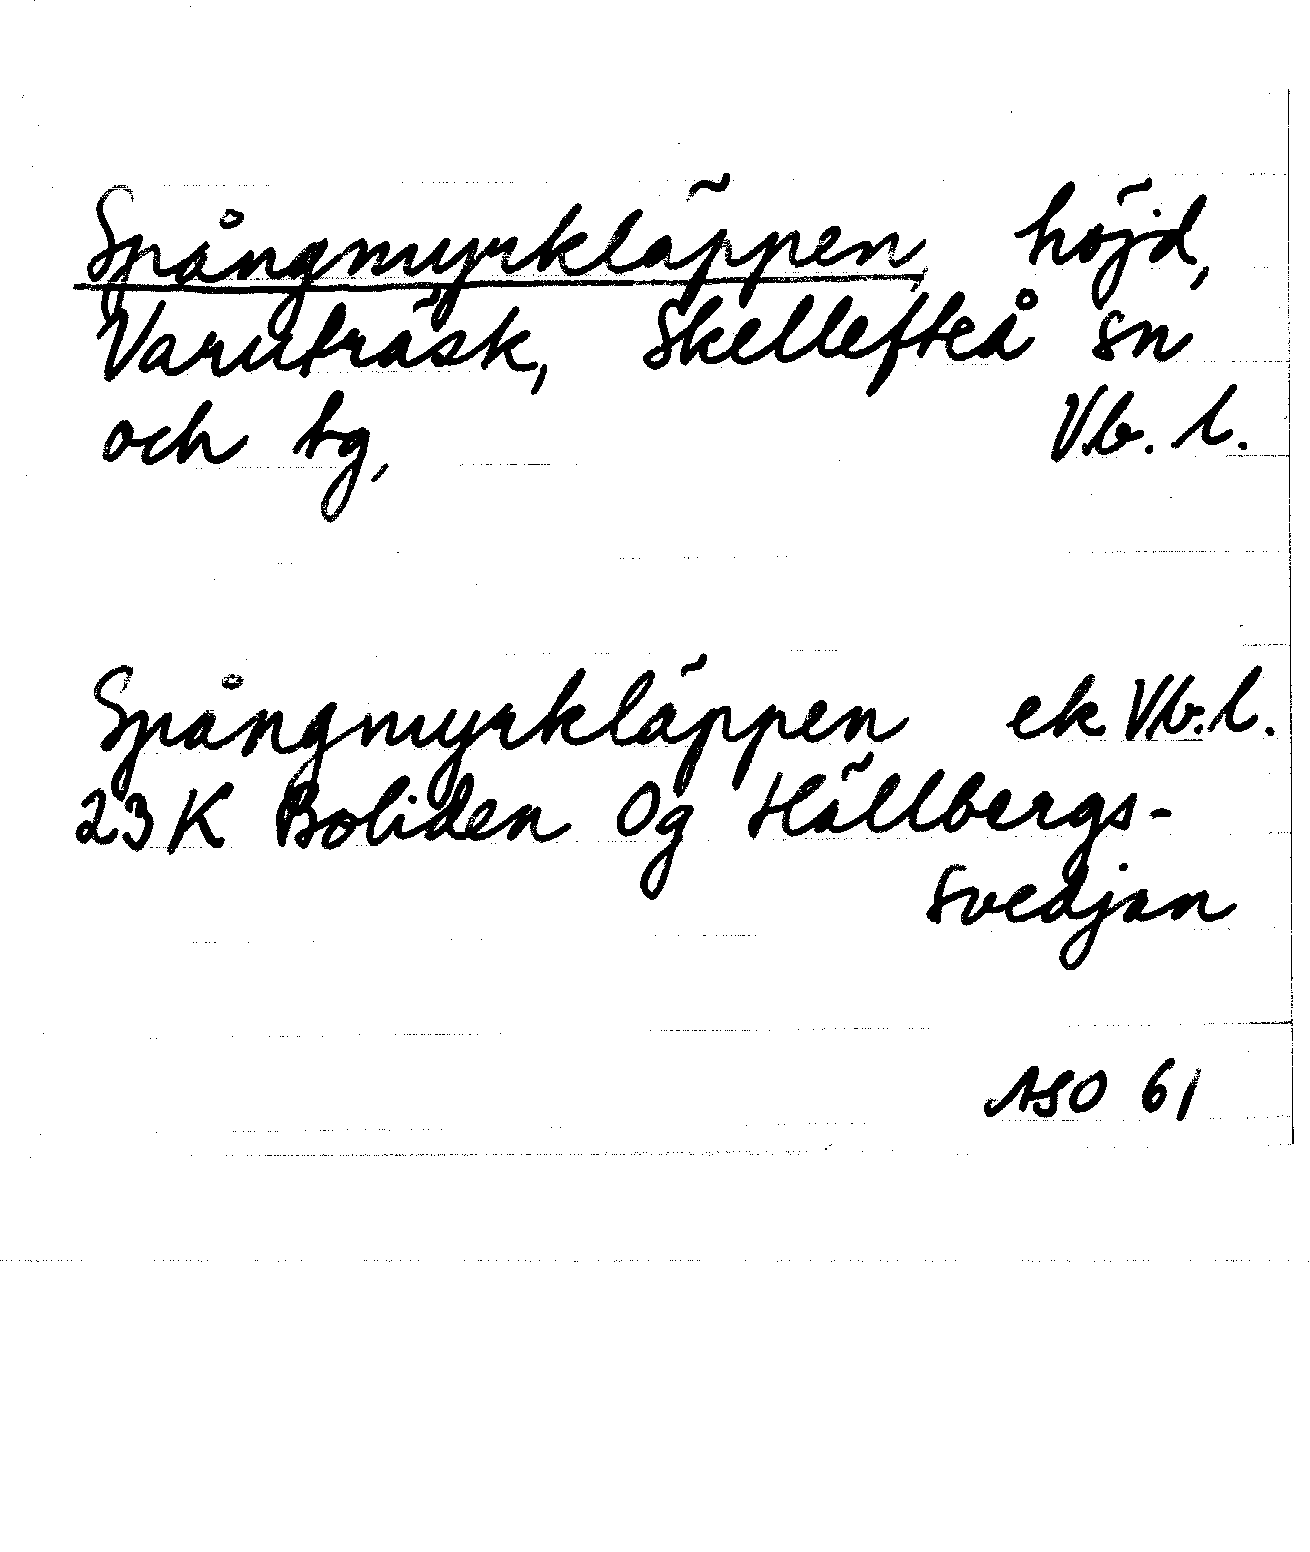 Spångmyrkläppen, höjd,
Varuträsk, Skellefteå sn
och tg, Vb. l.
Spångmyrkläppen ek Vb. l.
23K Boliden 0g Hällbergs-
svedjan
ASO 61